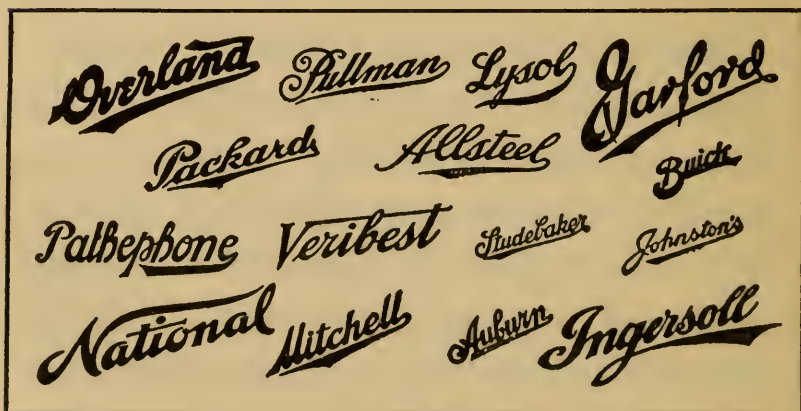 Overland Pullman Lysol Garford
Packard Allsteel Buick
Pathephone Veribest Studebaker Johnston's
National Mitchell Auburn Ingersoll